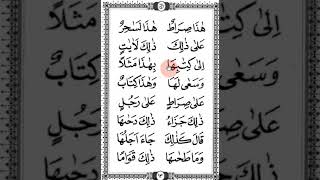 هٰذَا صِرَاطٌ هٰذَا لَسٰحِرٌ
عَلٰى ذٰلِكَ ذٰلِكَ لَاٰيٰتٍ
اِلٰى كِتٰبِهَا بِهٰذَا مَثَلًا
وَسَعٰى لَهَا وَهٰذَا كِتَابٌ
عَلٰى صِرَاطٍ عَلٰى رَجُلٍ
ذٰلِكَ جَزَاءُ ذٰلِكَ دَحٰىهَا
قَالَ كَذٰلِكَ جَاءَ اَجَلُهَا
وَمَا طَحٰىهَا ذٰلِكَ قَوَامًا